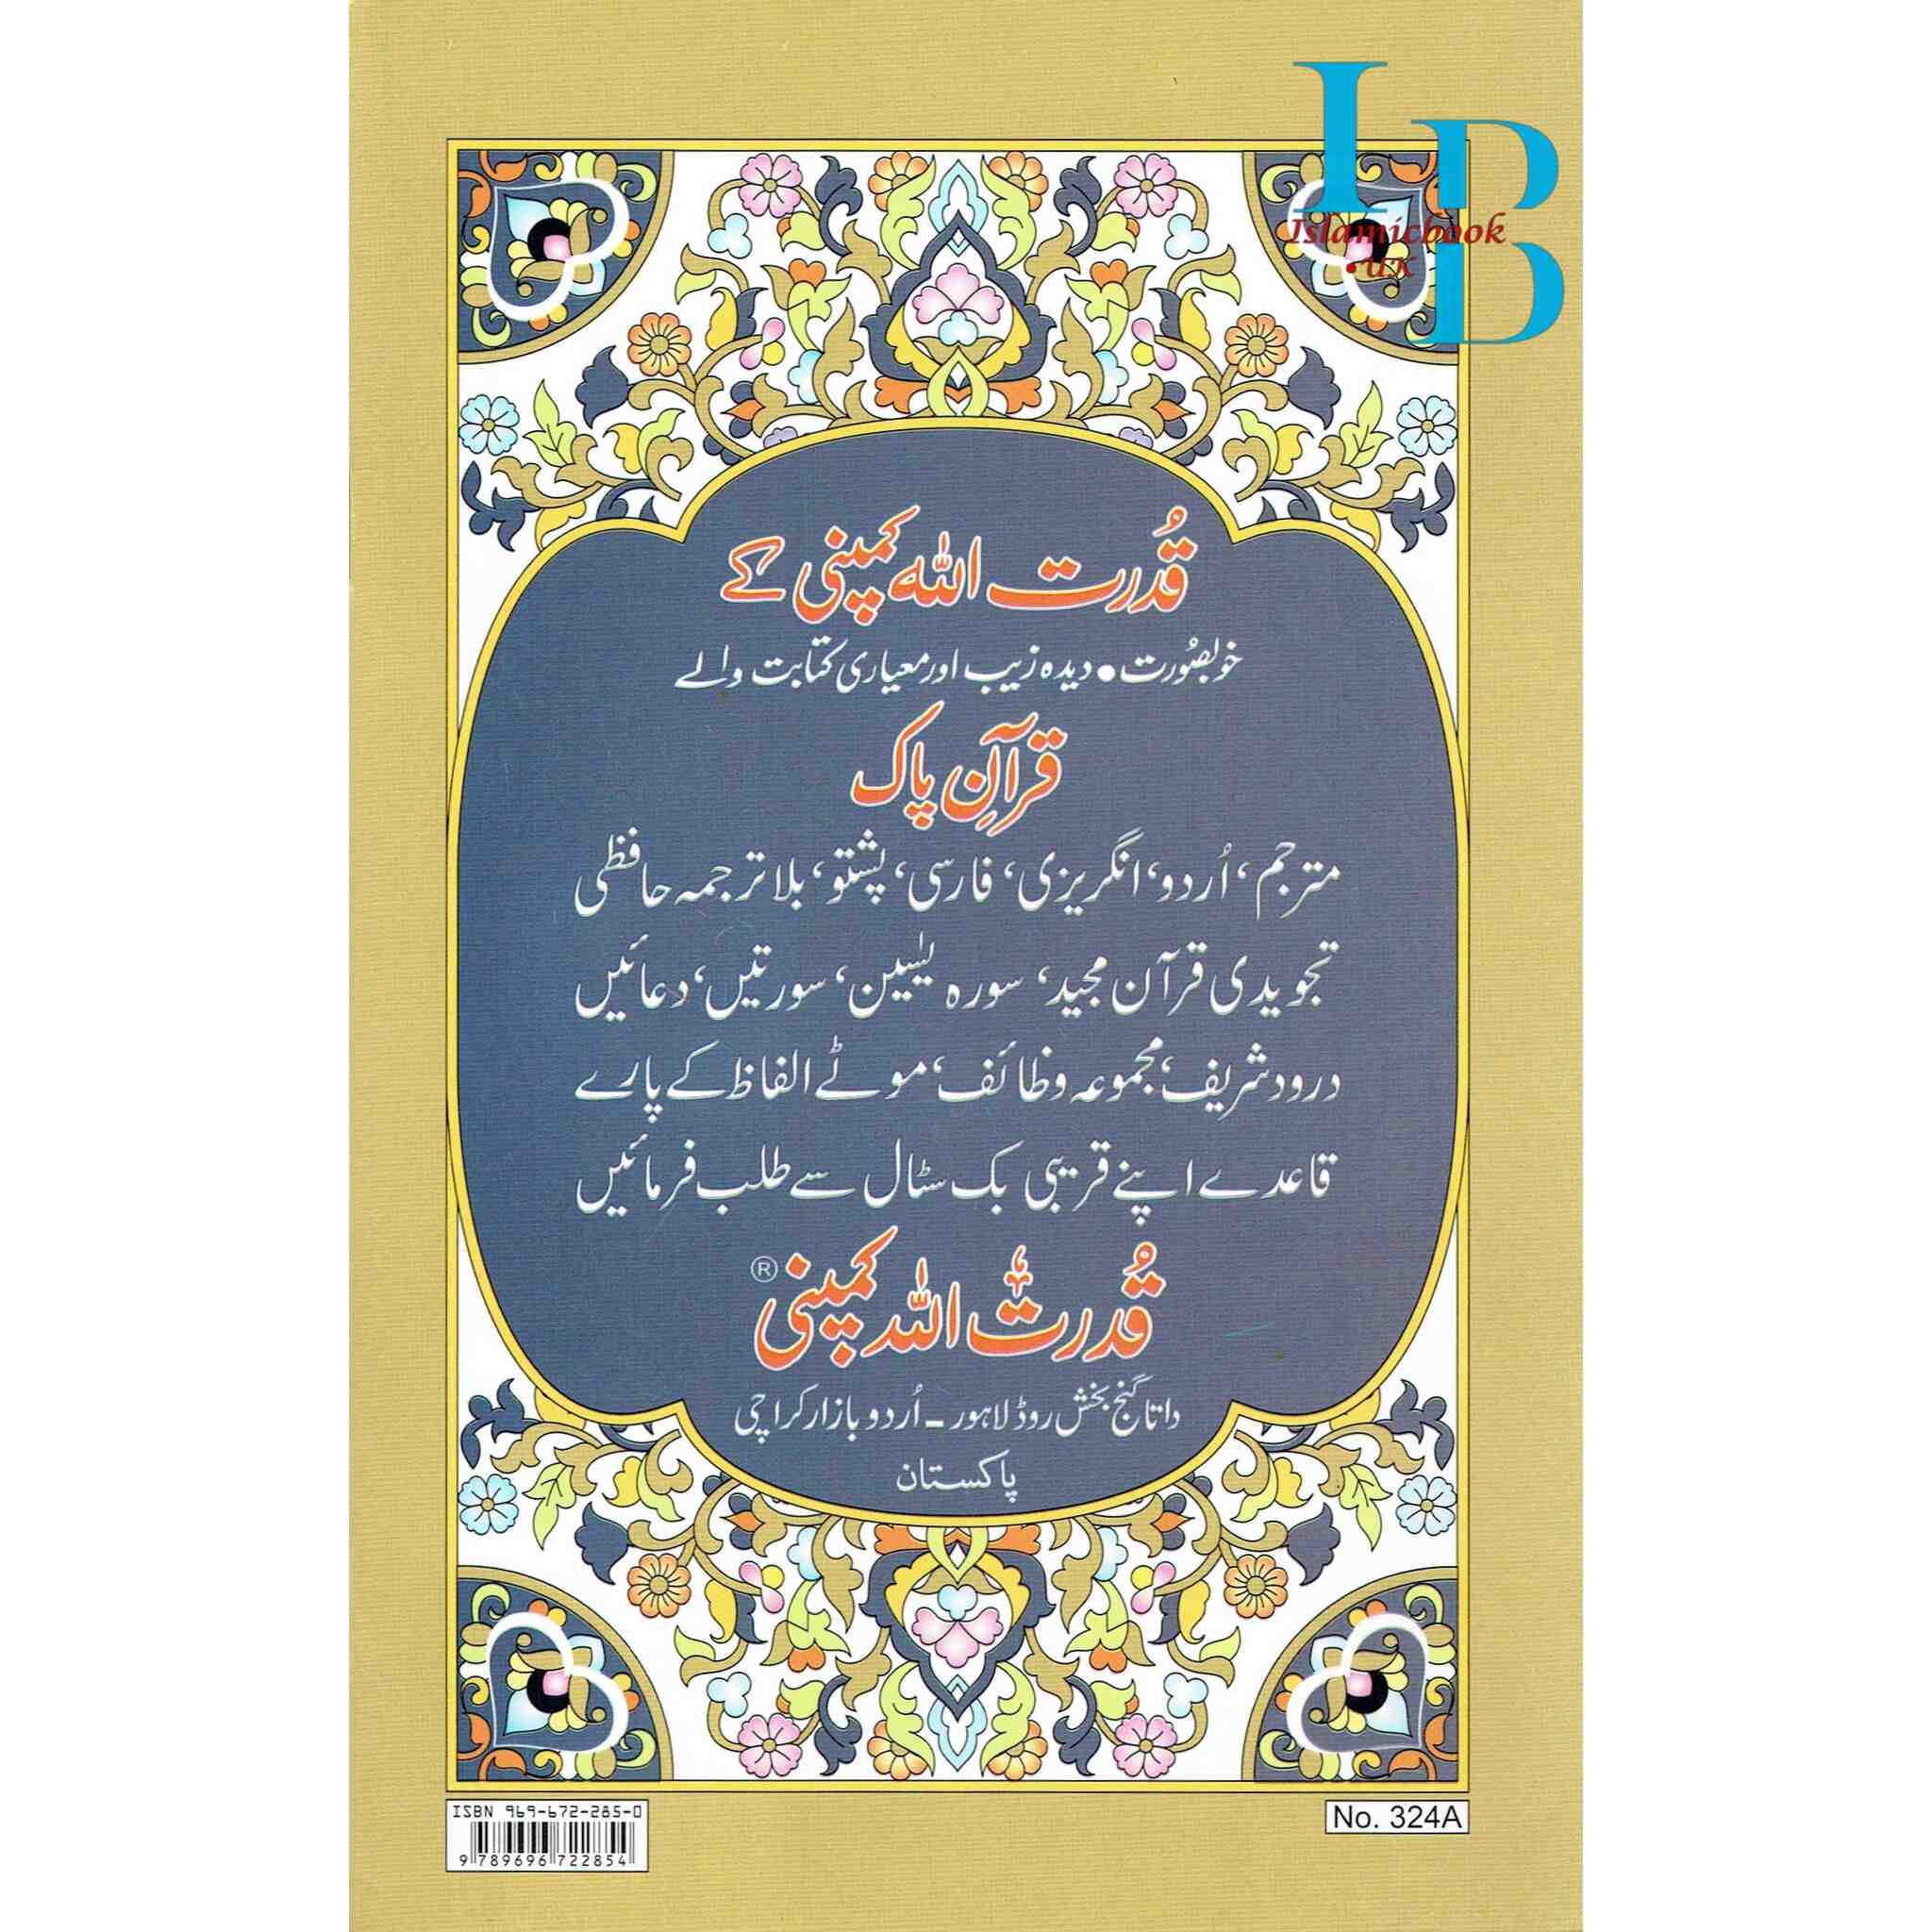 IB
Islamicbook
.UK
قُدرت اللہ کمپنی کے
خوبصُورت • دیدہ زیب اور معیاری کتابت والے
قرآنِ پاک
مترجم، اُردو، انگریزی، فارسی، پشتو، بلا ترجمہ حافظی
تجویدی قرآن مجید، سورہ یٰسین، سورتیں، دعائیں
درود شریف، مجموعہ وظائف، موٹے الفاظ کے پارے
قاعدے اپنے قریبی بک سٹال سے طلب فرمائیں
قُدرت اللہ کمپنی ®
داتا گنج بخش روڈ لاہور - اُردو بازار کراچی
پاکستان
ISBN 969-672-285-0
9 789696 722854
No. 324A